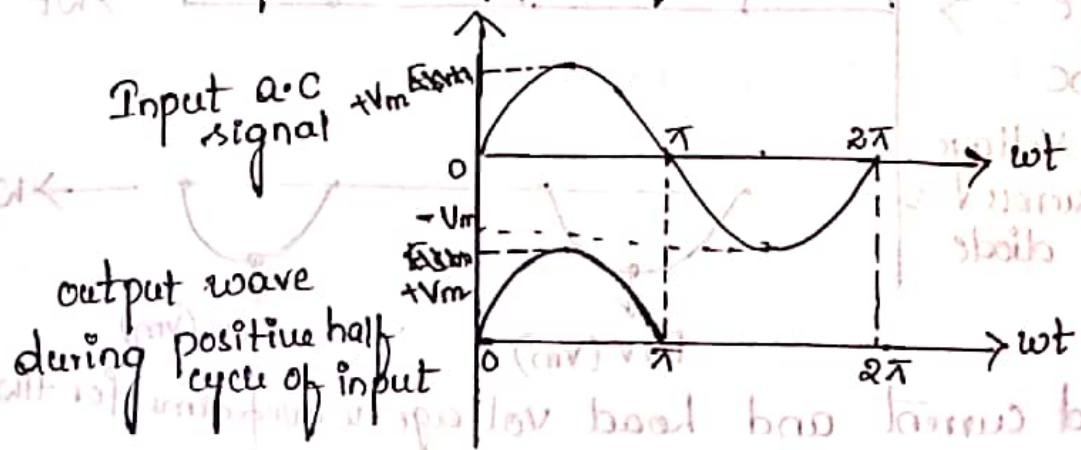 Input a.c
signal
+Vm
0
π
2π
wt
- Vm
+Vm
output wave
during positive half
cycle of input
0
π
2π
wt